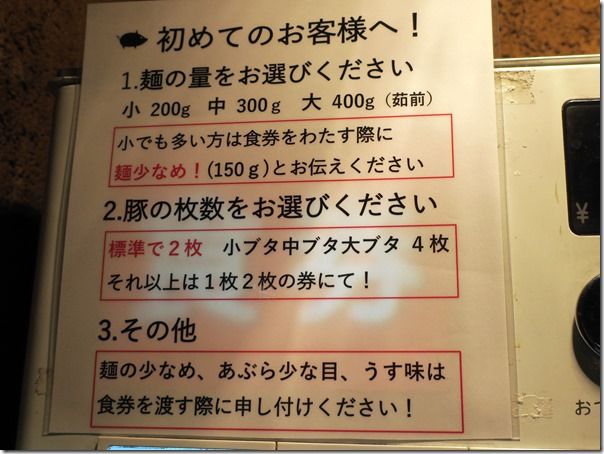 初めてのお客様へ！
1.麺の量をお選びください
小 200g 中 300g 大 400g（茹前）
小でも多い方は食券をわたす際に
麺少なめ！(150g)とお伝えください
2.豚の枚数をお選びください
標準で2枚 小ブタ中ブタ大ブタ 4枚
それ以上は1枚2枚の券にて！
3.その他
麺の少なめ、あぶら少な目、うす味は
食券を渡す際に申し付けください！
¥
おて